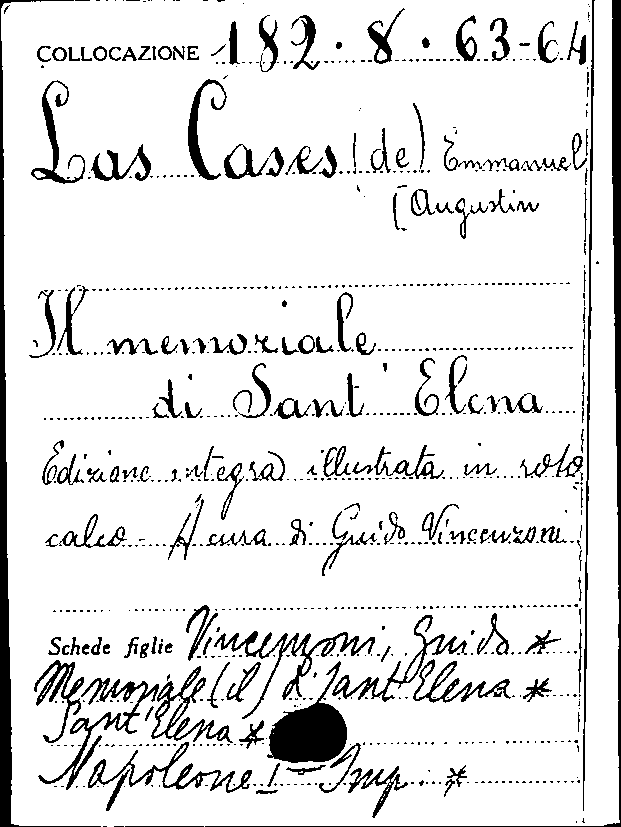 COLLOCAZIONE 182.8.63-64
Las Cases (de) Emmanuel
[Augustin
Il memoriale
di Sant' Elena
Edizione integra illustrata in roto
calco - A cura di Guido Vincenzoni
Schede figlie Vincenzoni, Guido *
Memoriale (il) di Sant'Elena *
Sant'Elena *
Napoleone I Imp. *